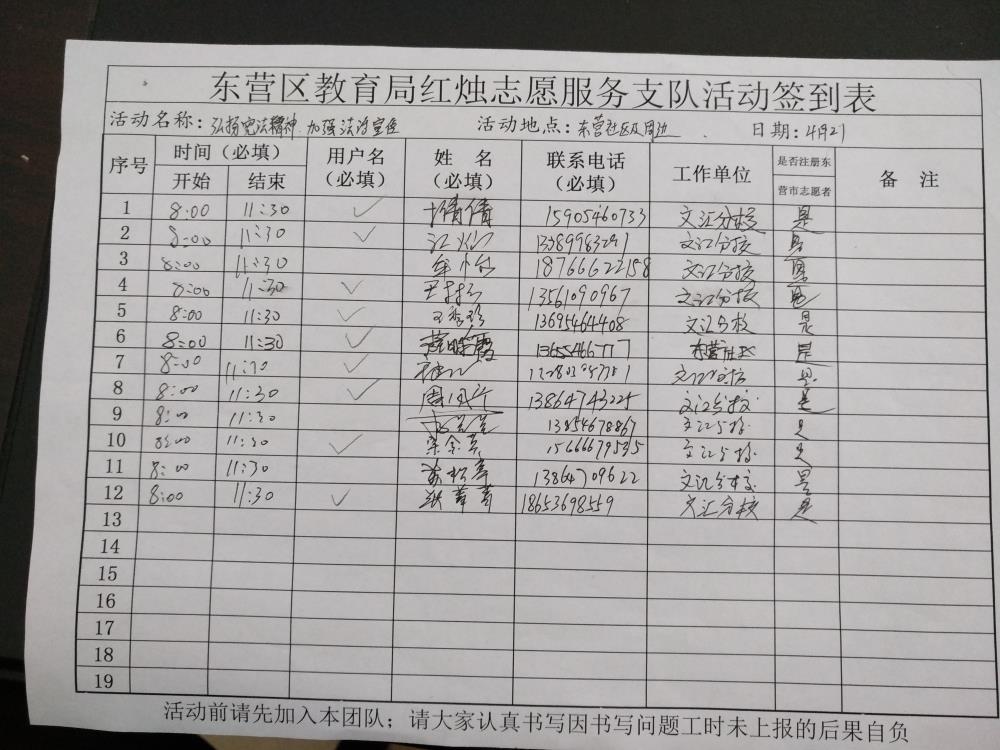 东营区教育局红烛志愿服务支队活动签到表
活动名称：弘扬宪法精神 加强法治宣传 活动地点：东营社区及周边 日期：4月21
序号 时间（必填） 用户名（必填） 姓 名（必填） 联系电话（必填） 工作单位 是否注册东营市志愿者 备 注
开始 结束
1 8:00 11:30 ✓ 倩倩 15905460733 文汇分校 是
2 8:00 11:30 ✓ 江 文汇分校 是
3 8:00 11:30 牟 18766622158 文汇分校 是
4 8:00 11:30 ✓ 13561090967 文汇分校 是
5 8:00 11:30 ✓ 王秀珍 13695464408 文汇分校 是
6 8:00 11:30 ✓ 霞 1365546677 东营社区 是
7 8:00 11:30 ✓ 文汇分校 是
8 8:00 11:30 ✓ 周 13864743225 文汇分校 是
9 8:00 11:30 13854678867 文汇分校 是
10 8:00 11:30 ✓ 15666679535 文汇分校 是
11 8:00 11:30 13864709622 文汇分校 是
12 8:00 11:30 ✓ 张苹苹 18653698559 文汇分校 是
13
14
15
16
17
18
19
活动前请先加入本团队；请大家认真书写因书写问题工时未上报的后果自负